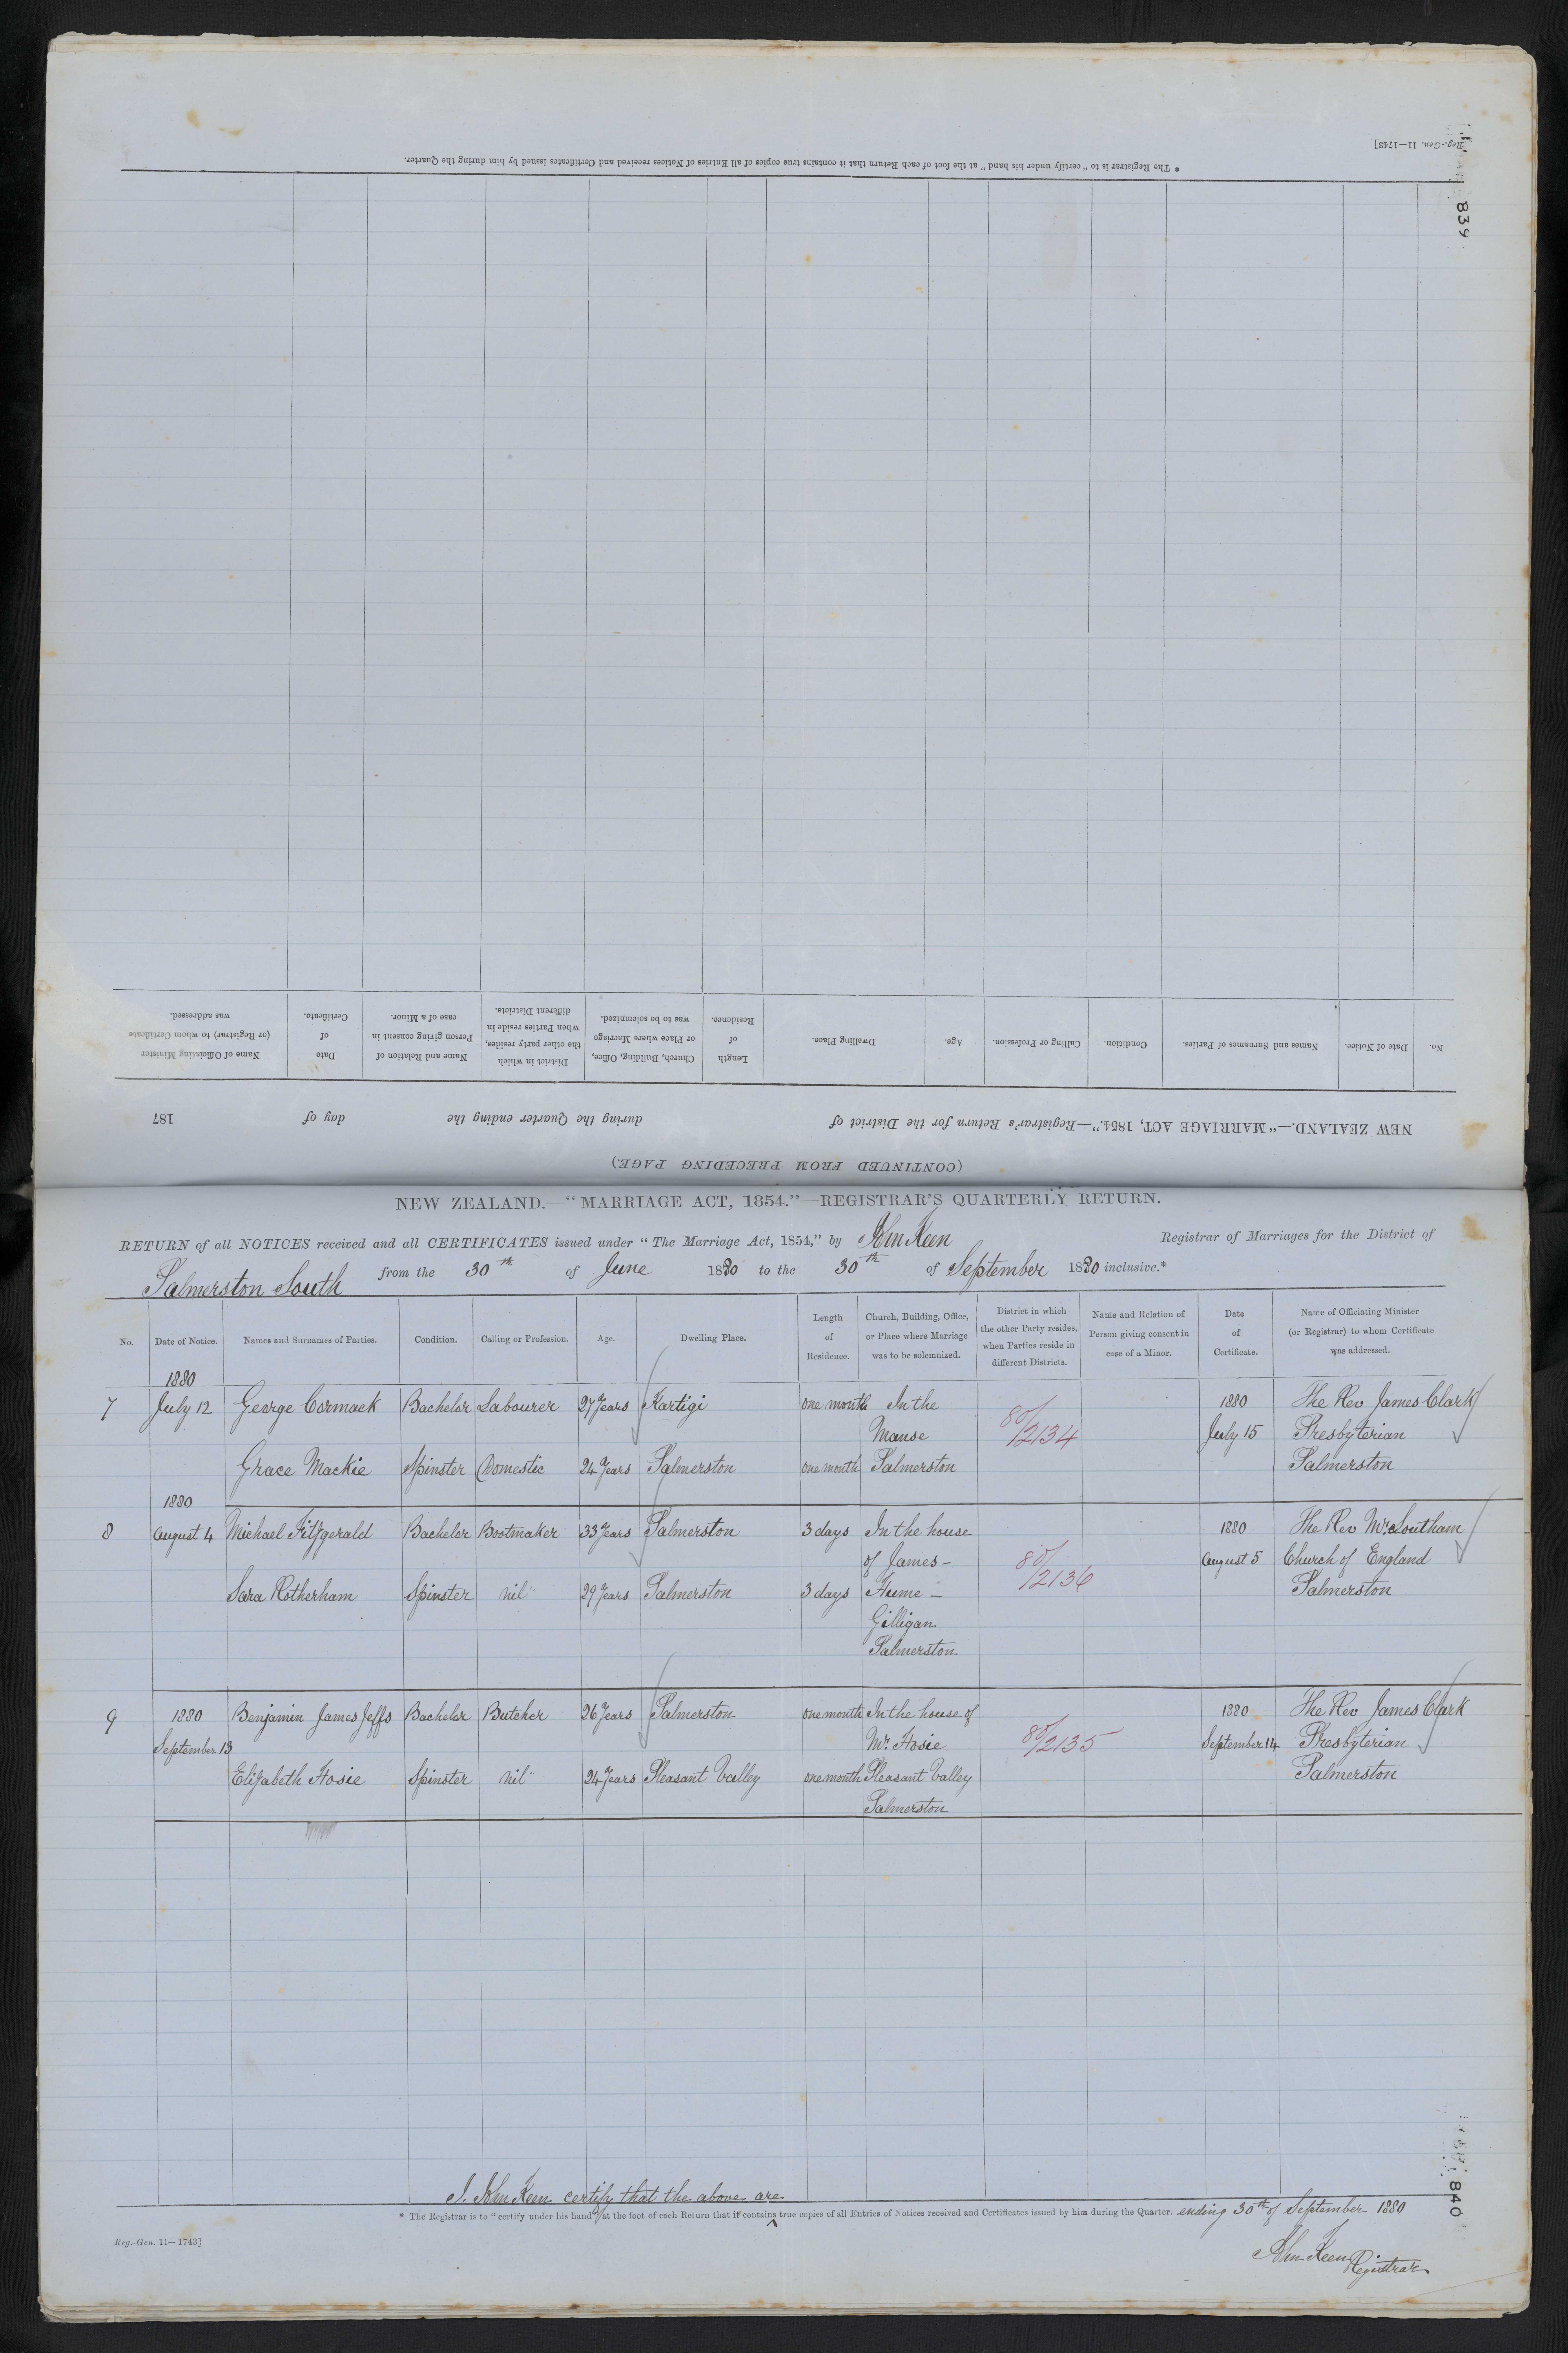 Reg.-Gen. 11—1743]
839
* The Registrar is to "certify under his hand" at the foot of each Return that it contains true copies of all Entries of Notices received and Certificates issued by him during the Quarter.
(CONTINUED FROM PRECEDING PAGE.)
NEW ZEALAND.—"MARRIAGE ACT, 1854."—Registrar's Return for the District of during the Quarter ending the day of 187
No. Date of Notice. Names and Surnames of Parties. Condition. Calling or Profession. Age. Dwelling Place. Length of Residence. Church, Building, Office, or Place where Marriage was to be solemnized. District in which the other party resides, when Parties reside in different Districts. Name and Relation of Person giving consent in case of a Minor. Date of Certificate. Name of Officiating Minister (or Registrar) to whom Certificate was addressed.
NEW ZEALAND.—"MARRIAGE ACT, 1854."—REGISTRAR'S QUARTERLY RETURN.
RETURN of all NOTICES received and all CERTIFICATES issued under "The Marriage Act, 1854," by John Keen Registrar of Marriages for the District of
Palmerston South from the 30th of June 1880 to the 30th of September 1880 inclusive.*
No. Date of Notice. Names and Surnames of Parties. Condition. Calling or Profession. Age. Dwelling Place. Length of Residence. Church, Building, Office, or Place where Marriage was to be solemnized. District in which the other Party resides, when Parties reside in different Districts. Name and Relation of Person giving consent in case of a Minor. Date of Certificate. Name of Officiating Minister (or Registrar) to whom Certificate was addressed.
1880
7 July 12 George Cormack Bachelor Labourer 27 Years Kartigi one month In the 80/2134 1880 The Rev James Clark
Manse July 15 Presbyterian
Grace Mackie Spinster Domestic 24 Years Palmerston one month Palmerston Palmerston
1880
8 August 4 Michael Fitzgerald Bachelor Bootmaker 33 Years Palmerston 3 days In the house 1880 The Rev Mr Southam
of James - 80/2136 August 5 Church of England
Sara Rotherham Spinster nil 29 Years Palmerston 3 days Hume - Palmerston
Gilligan
Palmerston
9 1880 Benjamin James Jeffs Bachelor Butcher 26 Years Palmerston one month In the house of 1880 The Rev James Clark
September 13 Mr. Hosie 80/2135 September 14 Presbyterian
Elizabeth Hosie Spinster nil 24 Years Pleasant Valley one month Pleasant Valley Palmerston
Palmerston
I. John Keen certify that the above are
* The Registrar is to "certify under his hand" at the foot of each Return that it contains true copies of all Entries of Notices received and Certificates issued by him during the Quarter. ending 30th of September 1880
840
Reg.-Gen. 11—1743]
John Keen Registrar